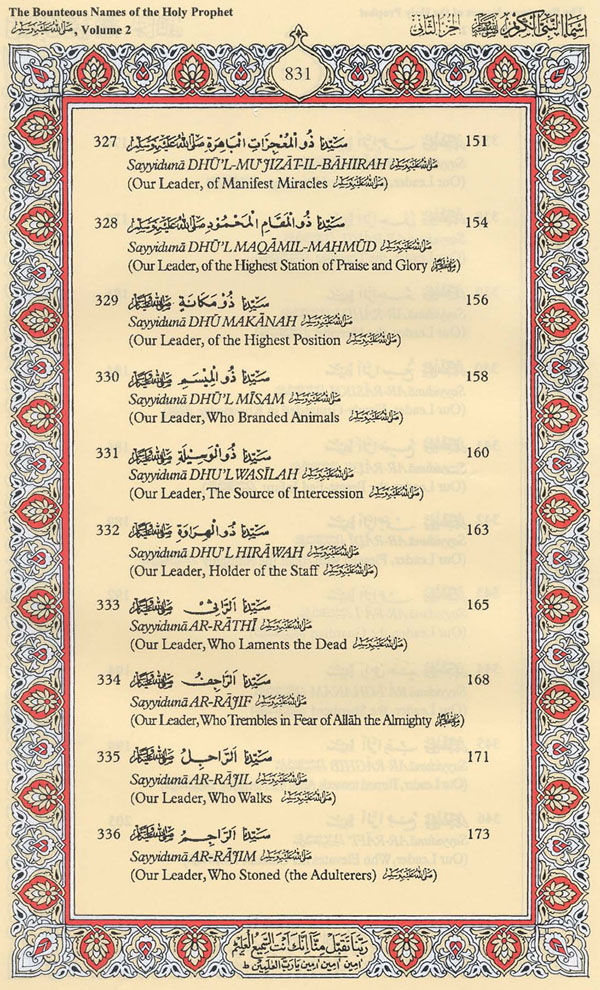 The Bounteous Names of the Holy Prophet
ﷺ, Volume 2
أسماء النبي الكريم ﷺ الجزء الثاني
831
327 سَيِّدُنَا ذُو الْمُعْجِزَاتِ الْبَاهِرَةِ ﷺ 151
Sayyidunā DHŪ'L-MU'JIZĀT-IL-BĀHIRAH ﷺ
(Our Leader, of Manifest Miracles ﷺ)
328 سَيِّدُنَا ذُو الْمَقَامِ الْمَحْمُودِ ﷺ 154
Sayyidunā DHŪ'L MAQĀMIL-MAHMŪD ﷺ
(Our Leader, of the Highest Station of Praise and Glory ﷺ)
329 سَيِّدُنَا ذُو مَكَانَةٍ ﷺ 156
Sayyidunā DHŪ MAKĀNAH ﷺ
(Our Leader, of the Highest Position ﷺ)
330 سَيِّدُنَا ذُو الْمِيْسَمِ ﷺ 158
Sayyidunā DHŪ'L MĪSAM ﷺ
(Our Leader, Who Branded Animals ﷺ)
331 سَيِّدُنَا ذُو الْوَسِيْلَةِ ﷺ 160
Sayyidunā DHU'L WASĪLAH ﷺ
(Our Leader, The Source of Intercession ﷺ)
332 سَيِّدُنَا ذُو الْهِرَاوَةِ ﷺ 163
Sayyidunā DHU'L HIRĀWAH ﷺ
(Our Leader, Holder of the Staff ﷺ)
333 سَيِّدُنَا الرَّاثِيْ ﷺ 165
Sayyidunā AR-RĀTHĪ ﷺ
(Our Leader, Who Laments the Dead ﷺ)
334 سَيِّدُنَا الرَّاجِفُ ﷺ 168
Sayyidunā AR-RĀJIF ﷺ
(Our Leader, Who Trembles in Fear of Allāh the Almighty ﷺ)
335 سَيِّدُنَا الرَّاجِلُ ﷺ 171
Sayyidunā AR-RĀJIL ﷺ
(Our Leader, Who Walks ﷺ)
336 سَيِّدُنَا الرَّاجِمُ ﷺ 173
Sayyidunā AR-RĀJIM ﷺ
(Our Leader, Who Stoned (the Adulterers) ﷺ)
رَبَّنَا تَقَبَّلْ مِنَّا إِنَّكَ أَنْتَ السَّمِيعُ الْعَلِيمُ
امين امين امين يا رب العلمين ط